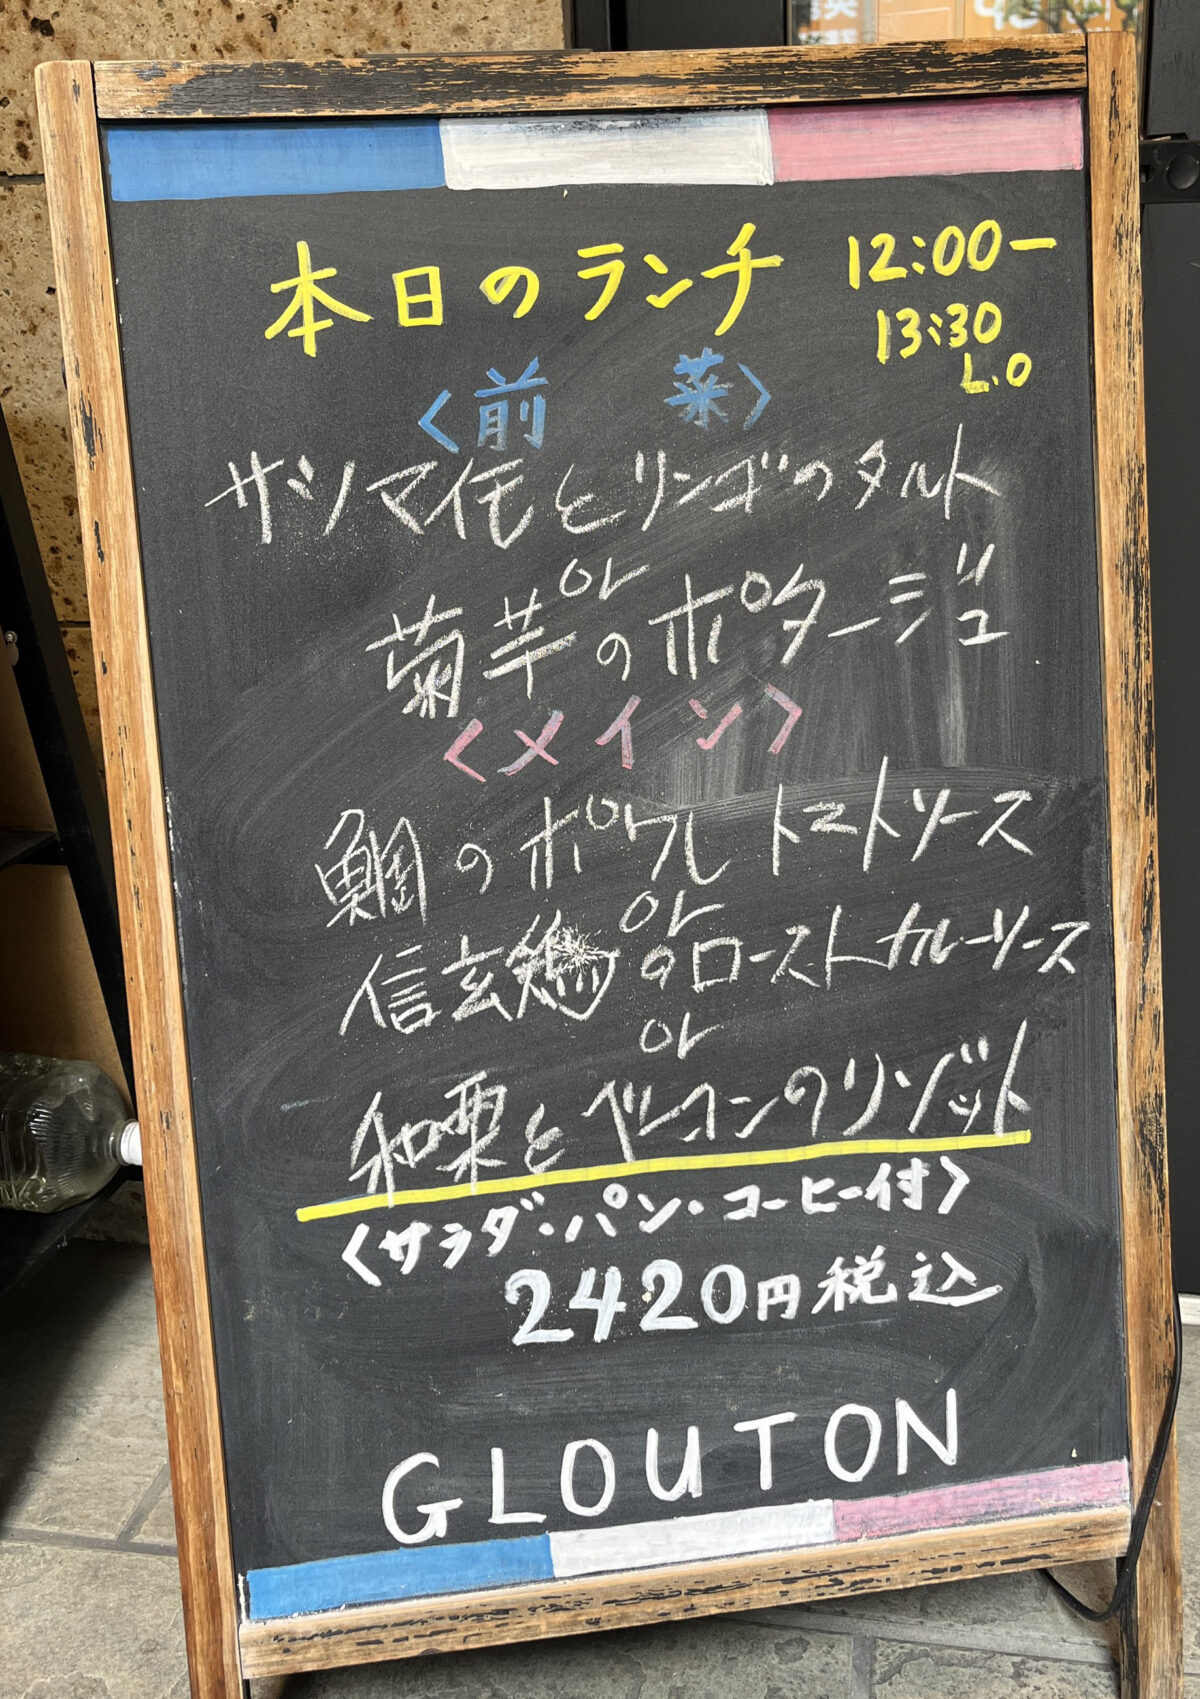 本日のランチ 12:00ー
13:30
L.O
〈前 菜〉
サツマイモとリンゴのタルト
or
菊芋のポタージュ
〈メイン〉
鯛のポワレ トマトソース
or
信玄鶏のローストカレーソース
or
和栗とベーコンのリゾット
〈サラダ・パン・コーヒー付〉
2420円税込
GLOUTON